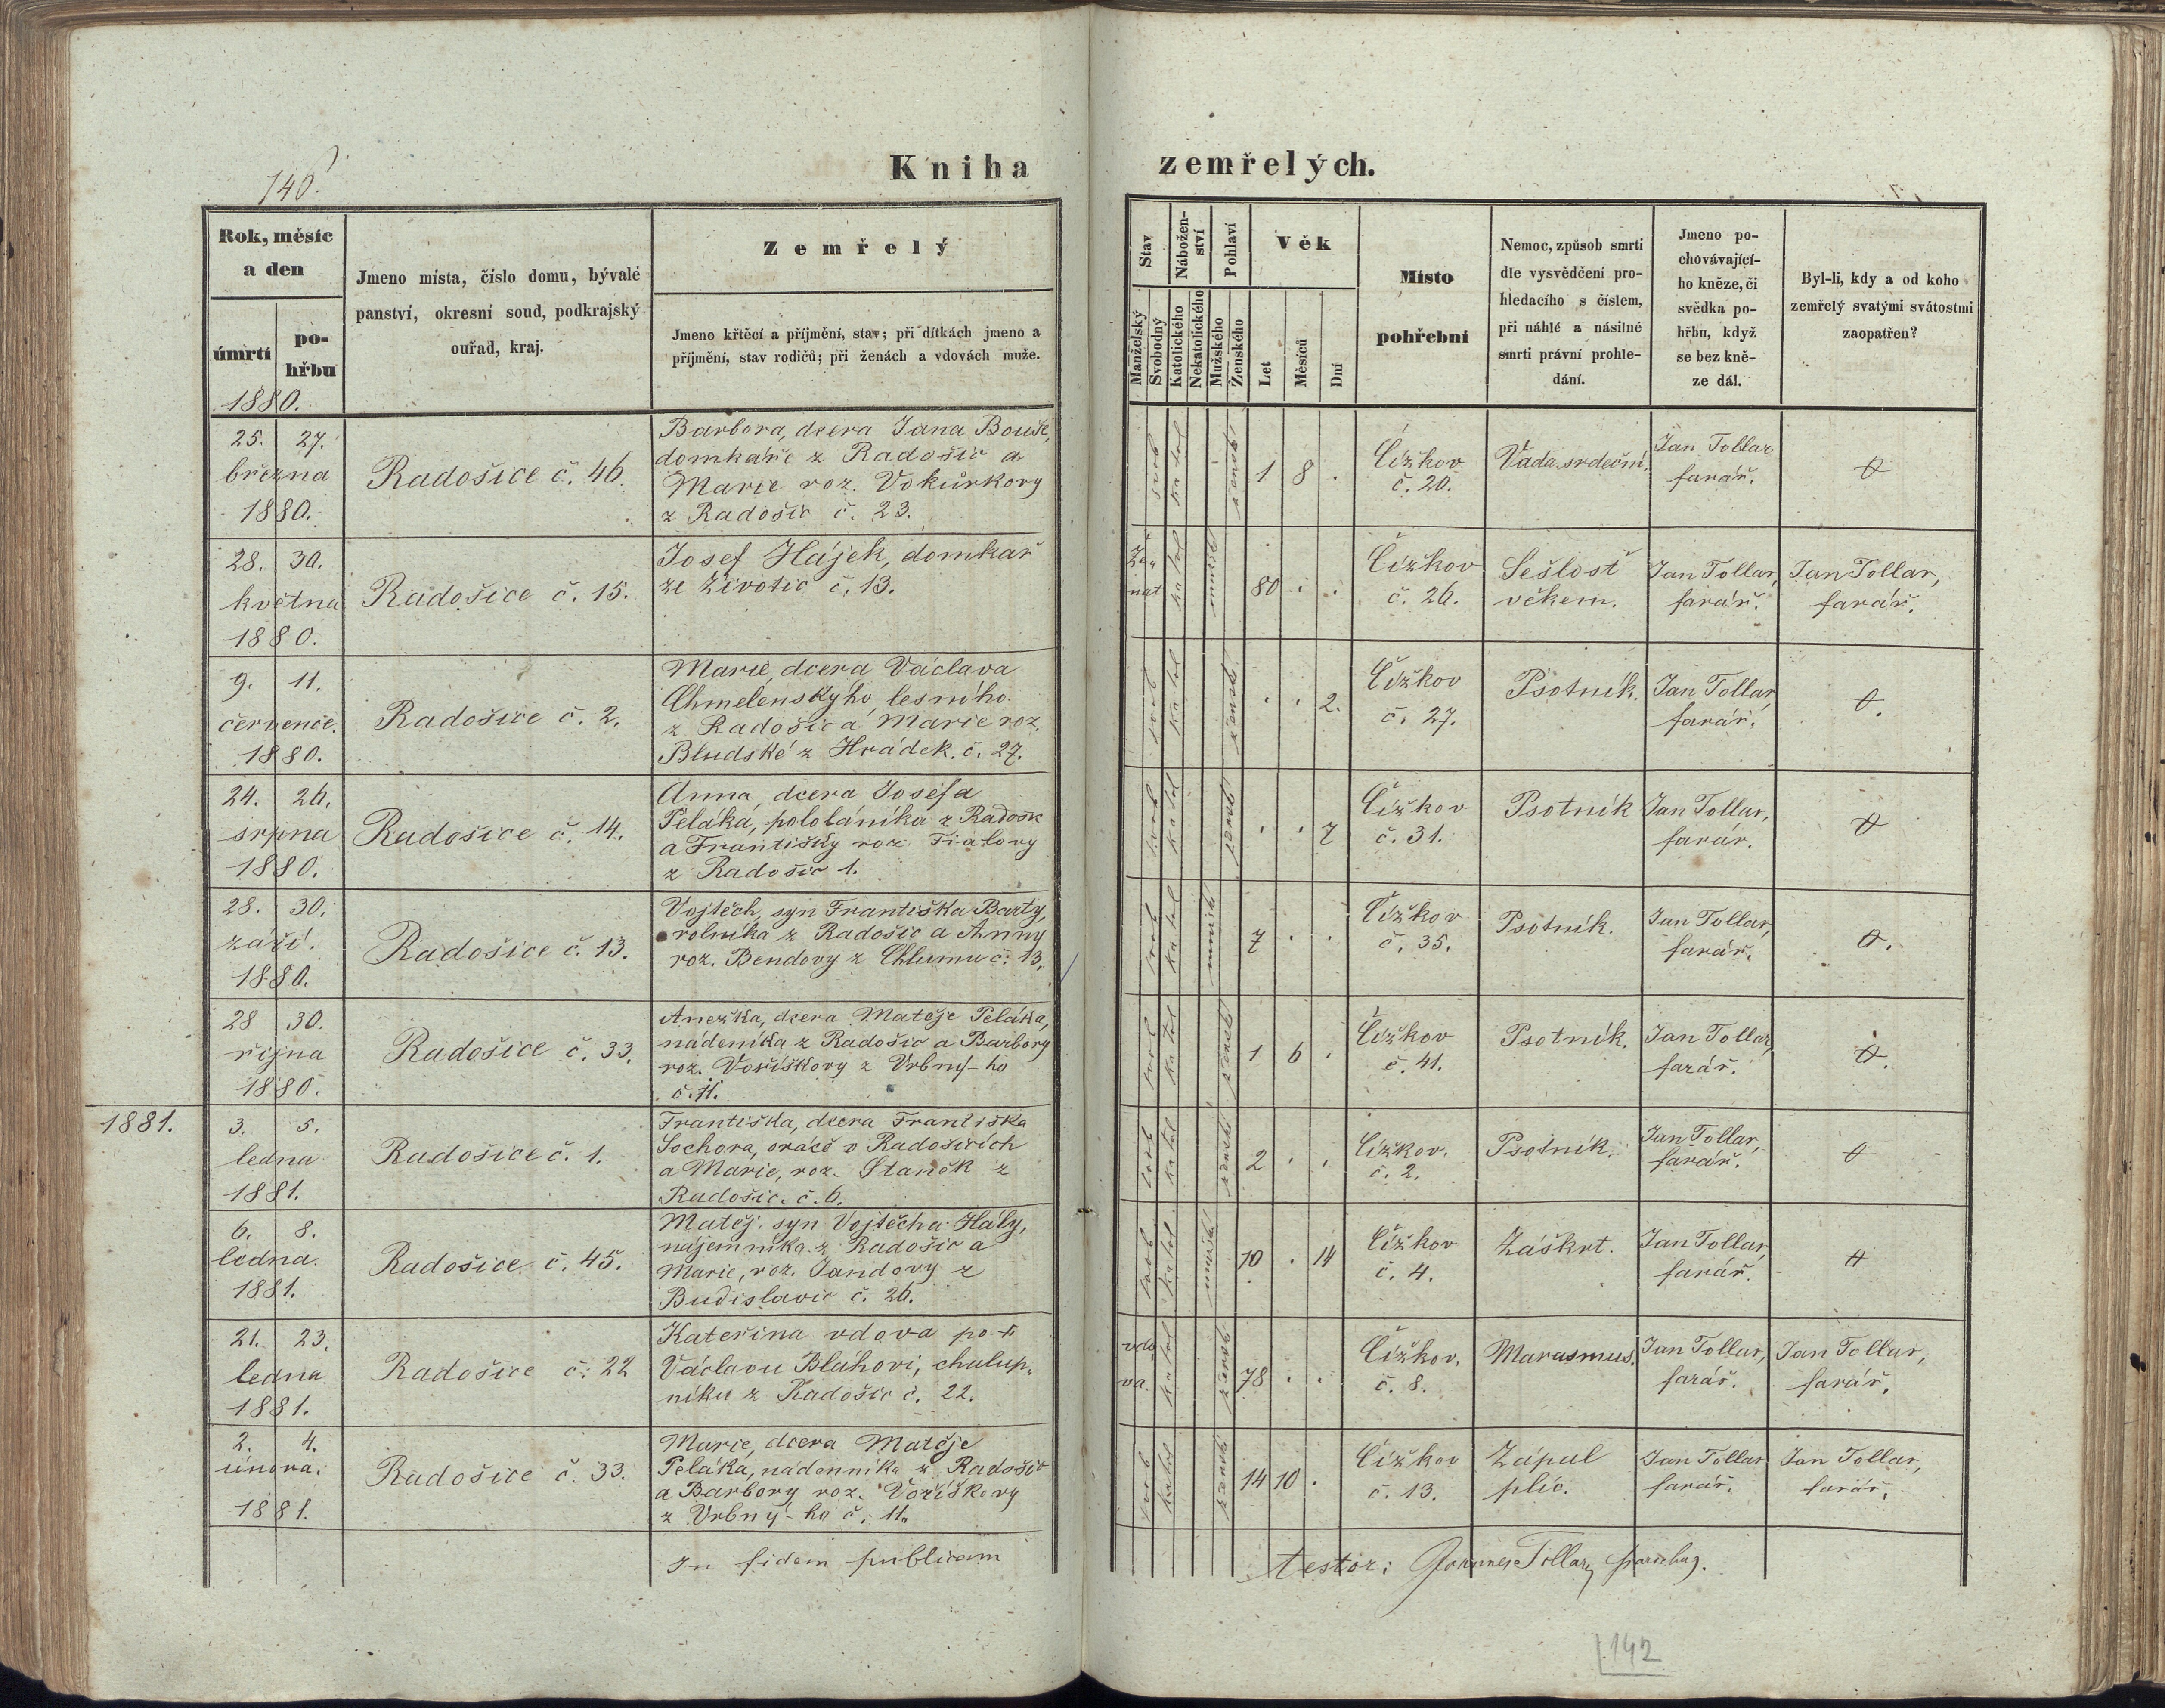 140.
Kniha zemřelých.
Rok, měsíc
a den
úmrtí
po-
hřbu
Jmeno místa, číslo domu, bývalé
panství, okresní soud, podkrajský
ouřad, kraj.
Zemřelý
Jmeno křtěcí a příjmění, stav; při dítkách jmeno a
příjmění, stav rodičů; při ženách a vdovách muže.
Stav
Manželský
Svobodný
Nábožen-
ství
Katolického
Nekatolického
Pohlaví
Mužského
Ženského
Věk
Let
Měsíců
Dní
Místo
pohřební
Nemoc, způsob smrti
dle vysvědčení pro-
hledacího s číslem,
při náhlé a násilné
smrti právní prohle-
dání.
Jmeno po-
chovávající-
ho kněze, či
svědka po-
hřbu, když
se bez kně-
ze dál.
Byl-li, kdy a od koho
zemřelý svatými svátostmi
zaopatřen?
1880.
25. 27.
března
1880.
Radošice č. 46.
Barbora, dcera Jana Bouše,
domkáře z Radošic a
Marie roz. Vokůrkovy
z Radošic č. 23.
svob
katol
žensk
1 8 .
Čížkov
č. 20.
Vada srdeční.
Jan Tollar
farář.
28. 30.
května
1880.
Radošice č. 15.
Josef Hájek, domkář
ze Životic č. 13.
Že„
nat
katol
mužsk
80 . .
Čížkov
č. 26.
Sešlost
věkem.
Jan Tollar,
farář.
Jan Tollar,
farář.
9. 11.
července.
1880.
Radošice č. 2.
Marie, dcera Václava
Chmelenskýho, lesního
z Radošic a Marie roz.
Bludské z Hrádek. č. 27.
svob
katol
žensk
. . 2.
Čížkov
č. 27.
Psotník.
Jan Tollar
farář.
24. 26.
srpna
1880.
Radošice č. 14.
Anna, dcera Josefa
Peláka, pololáníka z Radošic
a Františky roz. Fialovy
z Radošic 1.
svob
katol
žensk
. . 7
Čížkov
č. 31.
Psotník
Jan Tollar,
farár.
28. 30.
září.
1880.
Radošice č. 13.
Vojtěch, syn Františka Barty,
rolníka z Radošic a Anny
roz. Bendovy z Chlumu č. 13.
svob
katol
mužsk
7 . .
Čížkov
č. 35.
Psotník.
Jan Tollar,
farář.
28 30.
října
1880.
Radošice č. 33.
Anežka, dcera Matěje Peláka,
nádeníka z Radošic a Barbory
roz. Voříškovy z Vrbný-ho
č. 11.
svob
katol
žensk
1 6 .
Čížkov
č. 41.
Psotník.
Jan Tollar,
farář.
1881.
3. 5.
ledna
1881.
Radošice č. 1.
Františka, dcera Františka
Sochora, oráče v Radošicích
a Marie, roz. Staněk z
Radošic. č. 6.
svob
katol
žensk
2 . .
Čížkov.
č. 2.
Psotník.
Jan Tollar,
farář.
6. 8.
ledna.
1881.
Radošice č. 45.
Matěj, syn Vojtěcha Hály,
nájemníka z Radošic a
Marie, roz. Jandovy z
Budislavic č. 26.
svob
katol
mužsk
10 . 14
Čížkov
č. 4.
Záškrt.
Jan Tollar,
farář.
21. 23.
ledna
1881.
Radošice č. 22
Kateřina vdova po †
Václavu Bláhovi, chalup„
níku z Radošic č. 22.
vdo
va.
katol
žensk
78 . .
Čížkov.
č. 8.
Marasmus.
Jan Tollar,
farář.
Jan Tollar,
farář.
2. 4.
února.
1881.
Radošice č. 33.
Marie, dcera Matěje
Peláka, nádenníka z Radošic
a Barbory roz. Voříškovy
z Vrbný-ho č. 11.
svob
katol
žensk
14 10 .
Čížkov
č. 13.
Zápal
plic.
Jan Tollar
farář.
Jan Tollar,
farář.
In fidem publicam
testor: Joannes Tollar,
142